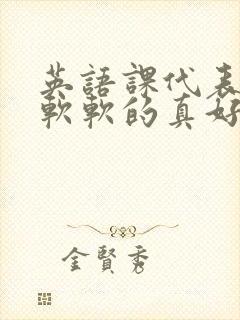 英語課代表
軟軟的真好
金賢秀